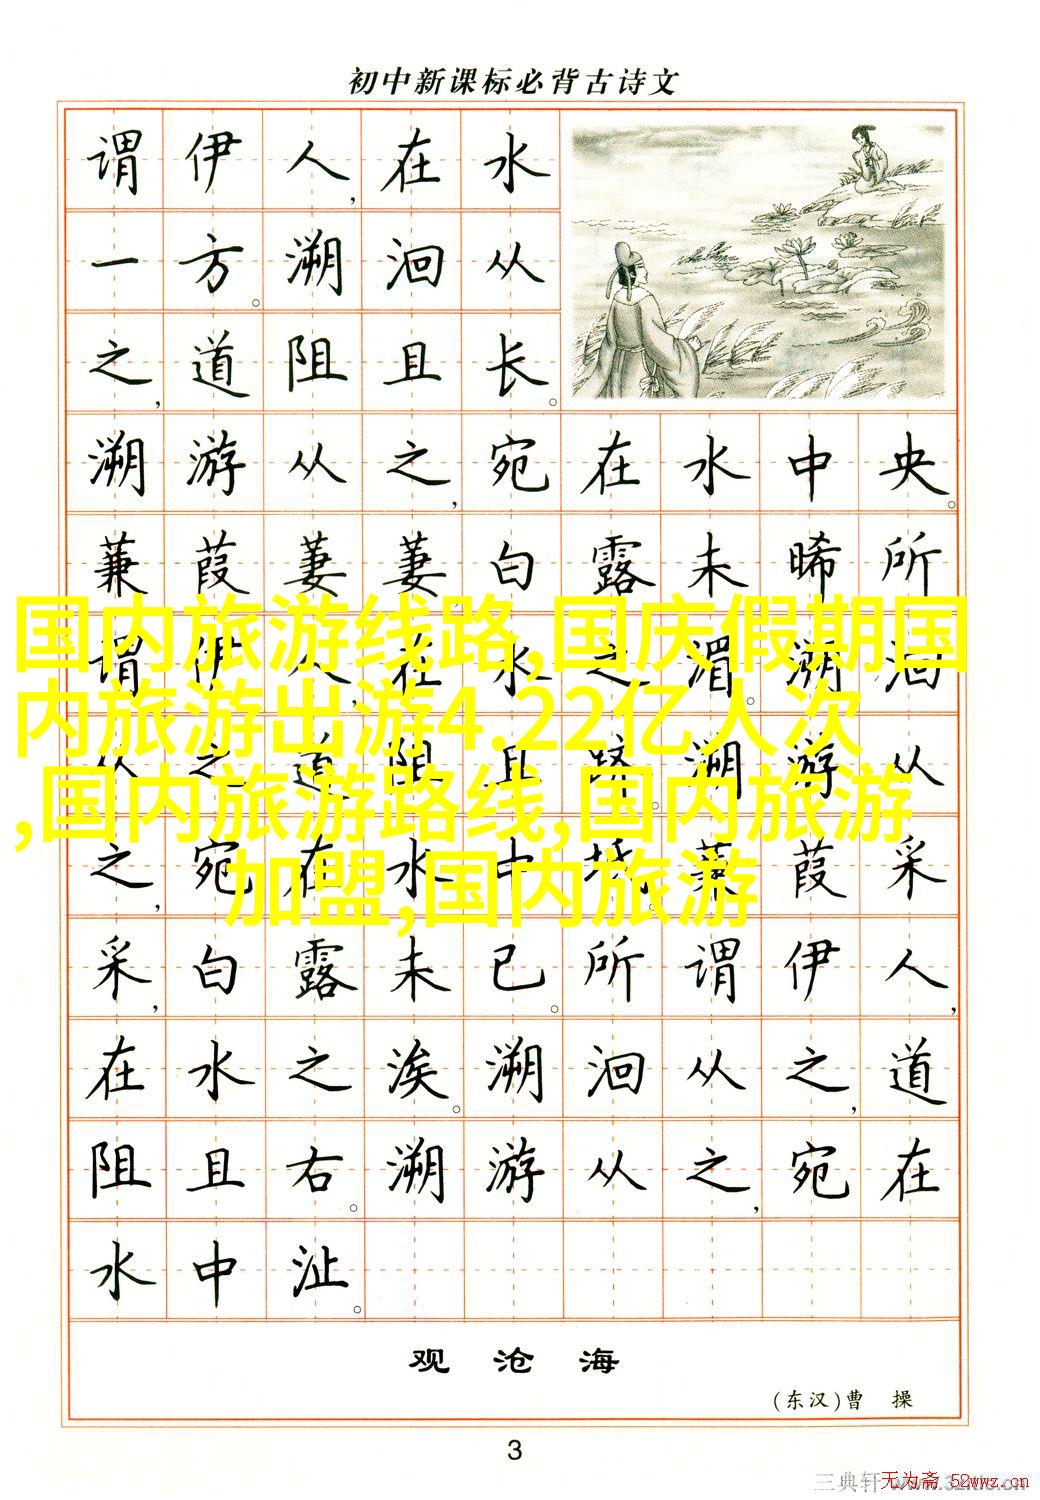 初中新课标必背古诗文
谓伊人，在水
一方。溯洄从
之，道阻且长。
溯游从之，宛在水中央。
蒹葭萋萋白露未晞所
谓伊人，在水之湄。溯洄
从之道阻且跻。溯游从
之，宛在水中坻。蒹葭采
采，白露未已。所谓伊人，
在水之涘。溯洄从之，道
阻且右。溯游从之，宛在
水中沚。
国内旅游线路,国庆假期国
内旅游出游4.22亿人次
,国内旅游路线,国内旅游
加盟,国内旅游
观沧海
(东汉)曹操
3
三典轩
无为斋 52wwz.cn